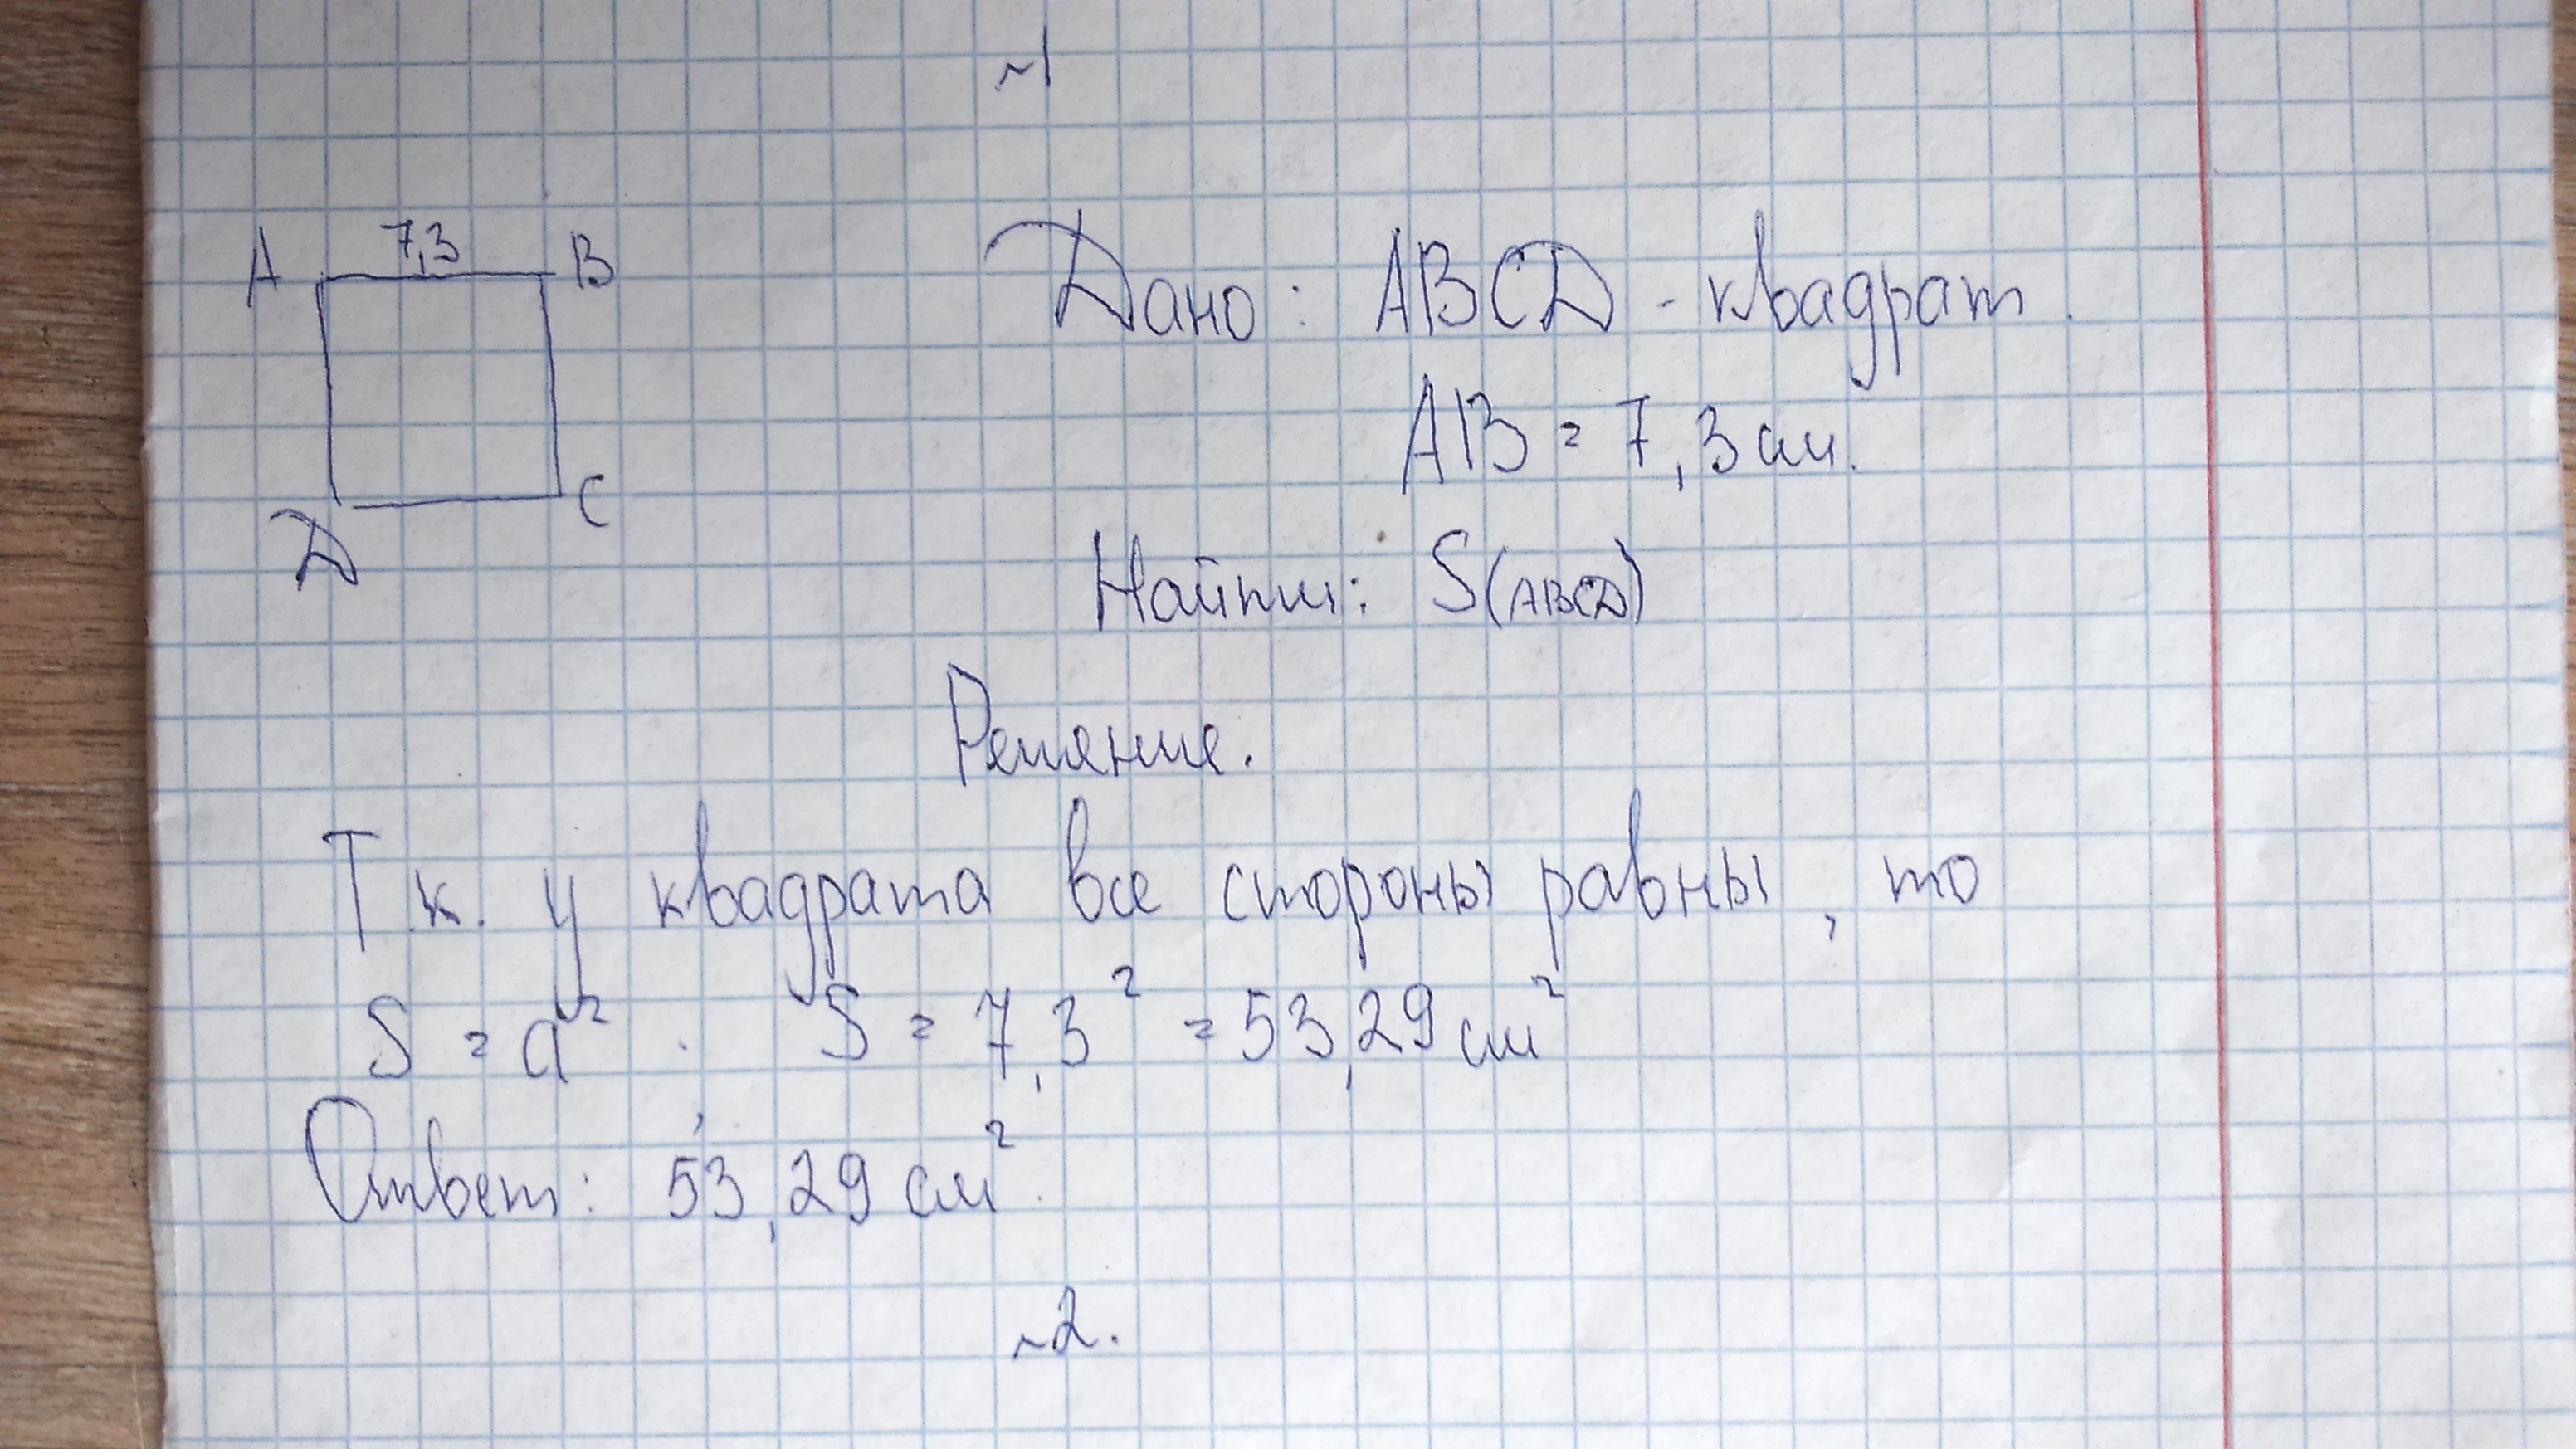 ~1
A 7,3 B
D C
Дано: ABCD - квадрат.
AB = 7,3 см.
Найти: S(ABCD)
Решение.
Т.к. у квадрата все стороны равны, то
S = a². S = 7,3² = 53,29 см²
Ответ: 53,29 см².
~2.